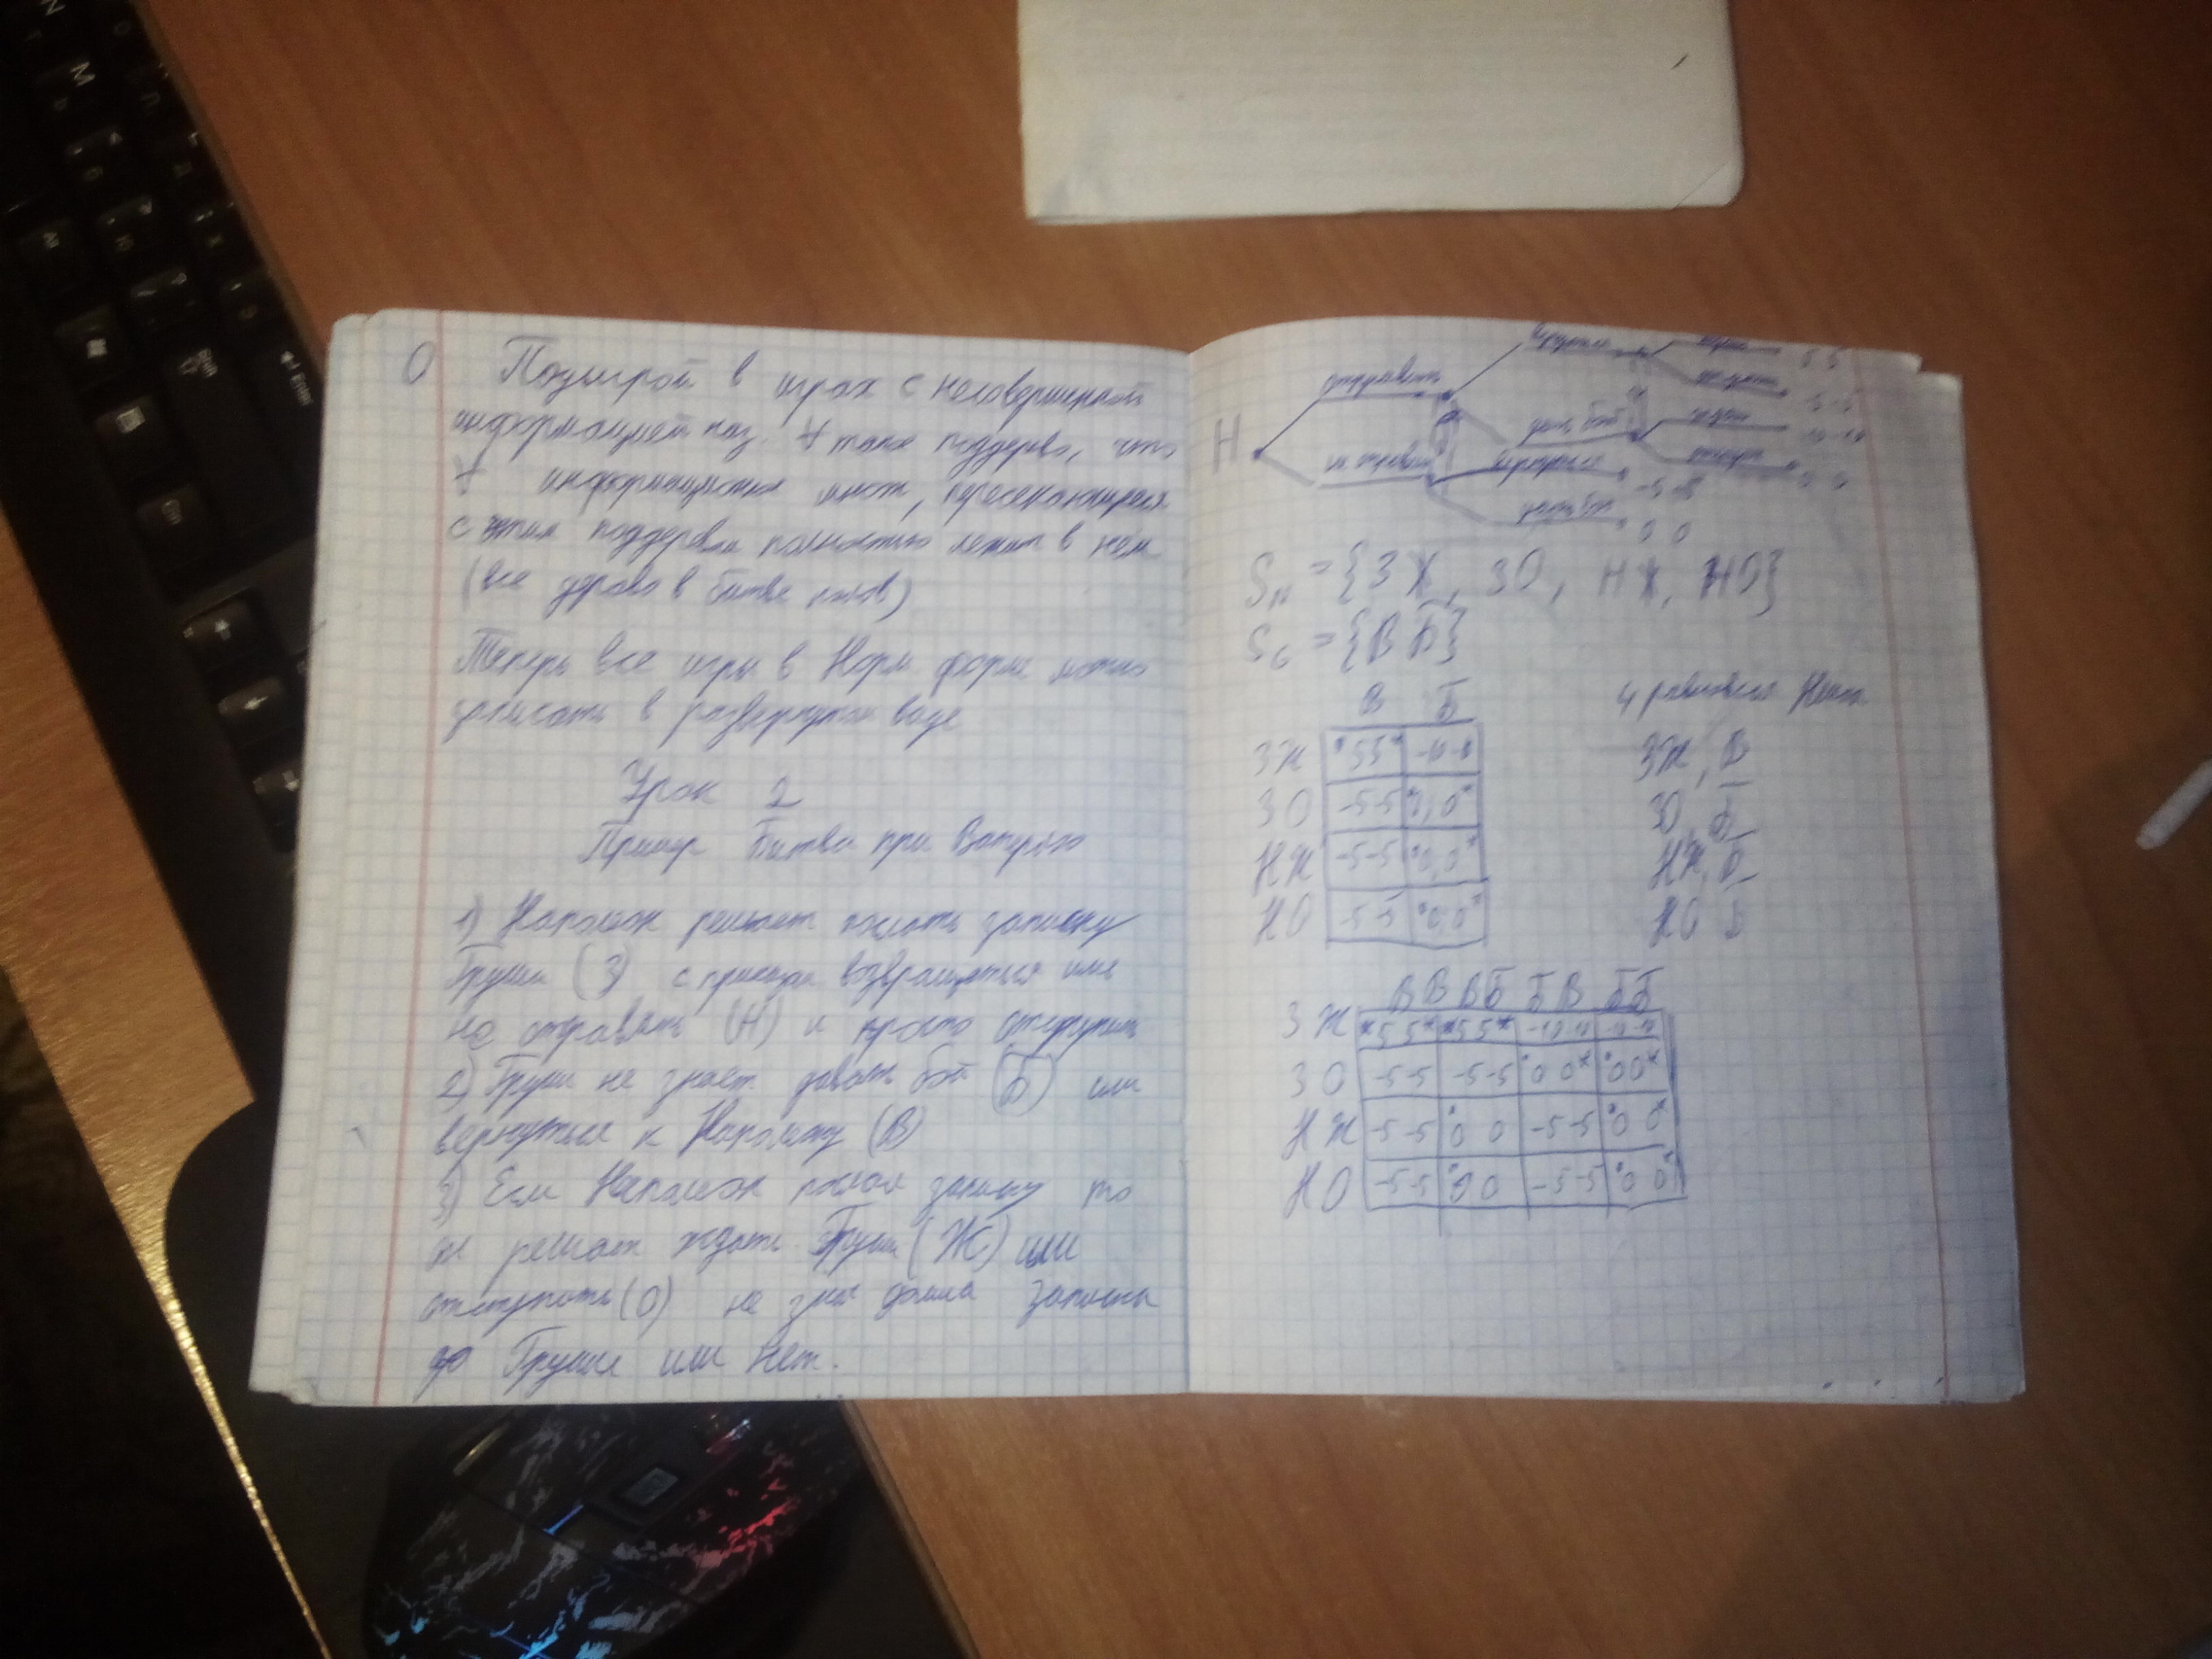 О Подыгрой в играх с несовершенной
информацией наз. ∀ такое поддерево, что
∀ информационное множ, пересекающееся
с этим поддеревом полностью лежит в нём
(все дерево в битве полов)
Теперь все игры в Норм. форме можно
записать в развернутом виде
Урок 2
Пример Битва при Ватерлоо
1) Наполеон решает послать записку
Груши (З) с приказом возвращаться или
не отправлять (Н) и просто отступить
2) Груши не знает давать бой (Б) или
вернуться к Наполеону (В)
3) Если Наполеон послал записку то
он решает ждать Груши (Ж) или
отступать (О) не зная дошла записка
до Груши или нет.
Н
отправить
вернуться
ждать
5 5
отступ
-5 -5
дать бой
ждать
-10 -10
отступ
0 0
не отправить
вернуться
-5 -5
дать бой
0 0
S н = {ЗЖ, ЗО, НЖ, НО}
S G = {В Б}
В Б
ЗЖ *5 5* -10 -10
ЗО -5 -5 *0, 0*
НЖ -5 -5 *0, 0*
НО -5 -5 *0, 0*
4 равновесия Нэша
ЗЖ, В
ЗО Б
НЖ, Б
НО Б
ВВ ВБ БВ ББ
ЗЖ *5 5* *5 5* -10 -10 -10 -10
ЗО -5 -5 -5 -5 *0 0* *0 0*
НЖ -5 -5 *0 0 -5 -5 *0 0*
НО -5 -5 *0 0 -5 -5 *0 0*